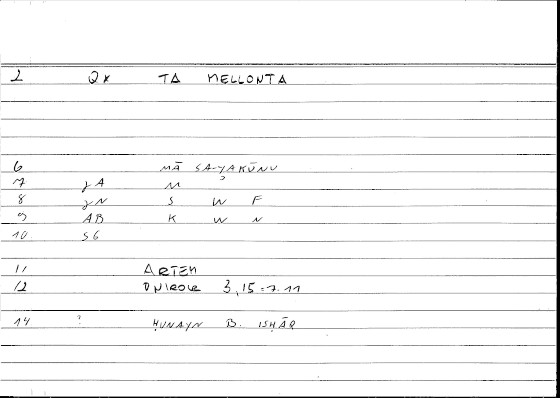 2 QK TA MELLONTA
6 MĀ SA-YAKŪNU
7 γA M
8 γN S W F
9 AB K W N
10 S6
11 ARTEM
12 ONIROCR 3,15 = 7.11
14 ? ḤUNAYN B. ISḤĀQ